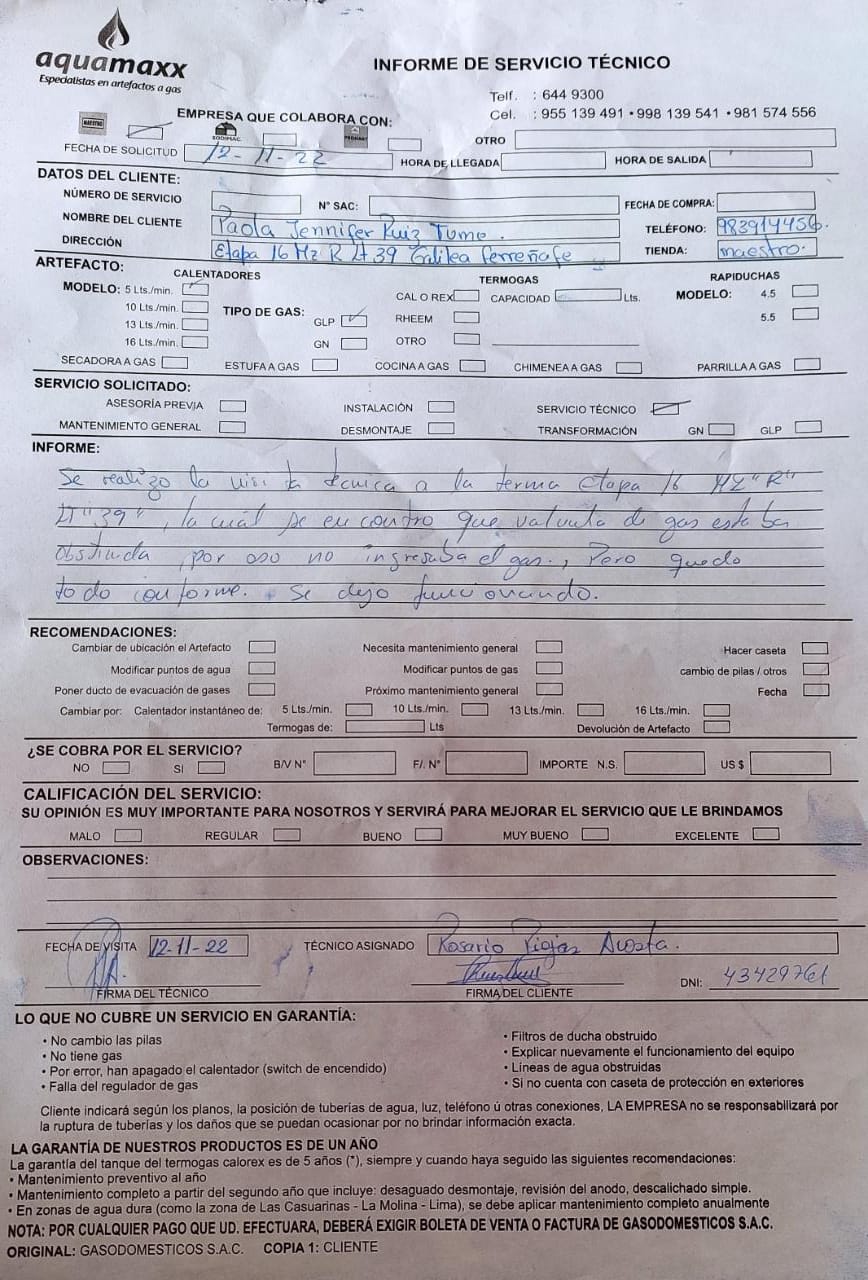 aquamaxx
Especialistas en artefactos a gas
INFORME DE SERVICIO TÉCNICO
Telf. : 644 9300
Cel. : 955 139 491 • 998 139 541 • 981 574 556
EMPRESA QUE COLABORA CON:
MAESTRO SODIMAC PROMART OTRO
FECHA DE SOLICITUD 12-11-22 HORA DE LLEGADA HORA DE SALIDA
DATOS DEL CLIENTE:
NÚMERO DE SERVICIO N° SAC: FECHA DE COMPRA:
NOMBRE DEL CLIENTE Paola Jennifer Ruiz Tume. TELÉFONO: 983914456.
DIRECCIÓN Etapa 16 Mz R Lt 39 Galilea ferreñafe TIENDA: maestro.
ARTEFACTO:
CALENTADORES TERMOGAS RAPIDUCHAS
MODELO: 5 Lts./min. CAL O REX CAPACIDAD Lts. MODELO: 4.5
10 Lts./min. TIPO DE GAS: GLP RHEEM 5.5
13 Lts./min.
16 Lts./min. GN OTRO
SECADORA A GAS ESTUFA A GAS COCINA A GAS CHIMENEA A GAS PARRILLA A GAS
SERVICIO SOLICITADO:
ASESORÍA PREVIA INSTALACIÓN SERVICIO TÉCNICO
MANTENIMIENTO GENERAL DESMONTAJE TRANSFORMACIÓN GN GLP
INFORME:
Se realizo la visita tecnica a la terma etapa 16 MZ "R"
LT "39", la cuál se encontro que valvula de gas estaba
obstruida por oso no ingresaba el gas., Pero quedo
todo conforme. Se dejo funcionando.
RECOMENDACIONES:
Cambiar de ubicación el Artefacto Necesita mantenimiento general Hacer caseta
Modificar puntos de agua Modificar puntos de gas cambio de pilas / otros
Poner ducto de evacuación de gases Próximo mantenimiento general Fecha
Cambiar por: Calentador instantáneo de: 5 Lts./min. 10 Lts./min. 13 Lts./min. 16 Lts./min.
Termogas de: Lts Devolución de Artefacto
¿SE COBRA POR EL SERVICIO?
NO SI B/V N° F/. N° IMPORTE N.S. US $
CALIFICACIÓN DEL SERVICIO:
SU OPINIÓN ES MUY IMPORTANTE PARA NOSOTROS Y SERVIRÁ PARA MEJORAR EL SERVICIO QUE LE BRINDAMOS
MALO REGULAR BUENO MUY BUENO EXCELENTE
OBSERVACIONES:
FECHA DE VISITA 12-11-22 TÉCNICO ASIGNADO Rosario Riojas Acosta.
FIRMA DEL TÉCNICO FIRMA DEL CLIENTE DNI: 43429761
LO QUE NO CUBRE UN SERVICIO EN GARANTÍA:
• No cambio las pilas
• No tiene gas
• Por error, han apagado el calentador (switch de encendido)
• Falla del regulador de gas
• Filtros de ducha obstruido
• Explicar nuevamente el funcionamiento del equipo
• Líneas de agua obstruidas
• Si no cuenta con caseta de protección en exteriores
Cliente indicará según los planos, la posición de tuberías de agua, luz, teléfono ú otras conexiones, LA EMPRESA no se responsabilizará por
la ruptura de tuberías y los daños que se puedan ocasionar por no brindar información exacta.
LA GARANTÍA DE NUESTROS PRODUCTOS ES DE UN AÑO
La garantía del tanque del termogas calorex es de 5 años (*), siempre y cuando haya seguido las siguientes recomendaciones:
• Mantenimiento preventivo al año
• Mantenimiento completo a partir del segundo año que incluye: desaguado desmontaje, revisión del anodo, descalichado simple.
• En zonas de agua dura (como la zona de Las Casuarinas - La Molina - Lima), se debe aplicar mantenimiento completo anualmente
NOTA: POR CUALQUIER PAGO QUE UD. EFECTUARA, DEBERÁ EXIGIR BOLETA DE VENTA O FACTURA DE GASODOMESTICOS S.A.C.
ORIGINAL: GASODOMESTICOS S.A.C. COPIA 1: CLIENTE